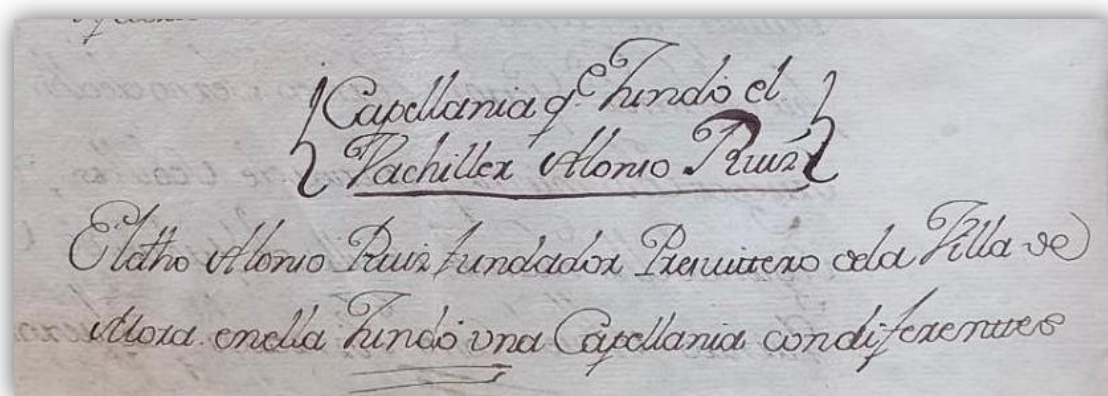 {Capellania q.e Fundó el}
{Vachiller Alonso Ruiz}
El dho Alonso Ruiz fundador Presvittero dela Villa de
Mora enella Fundó vna Capellania condiferenttes